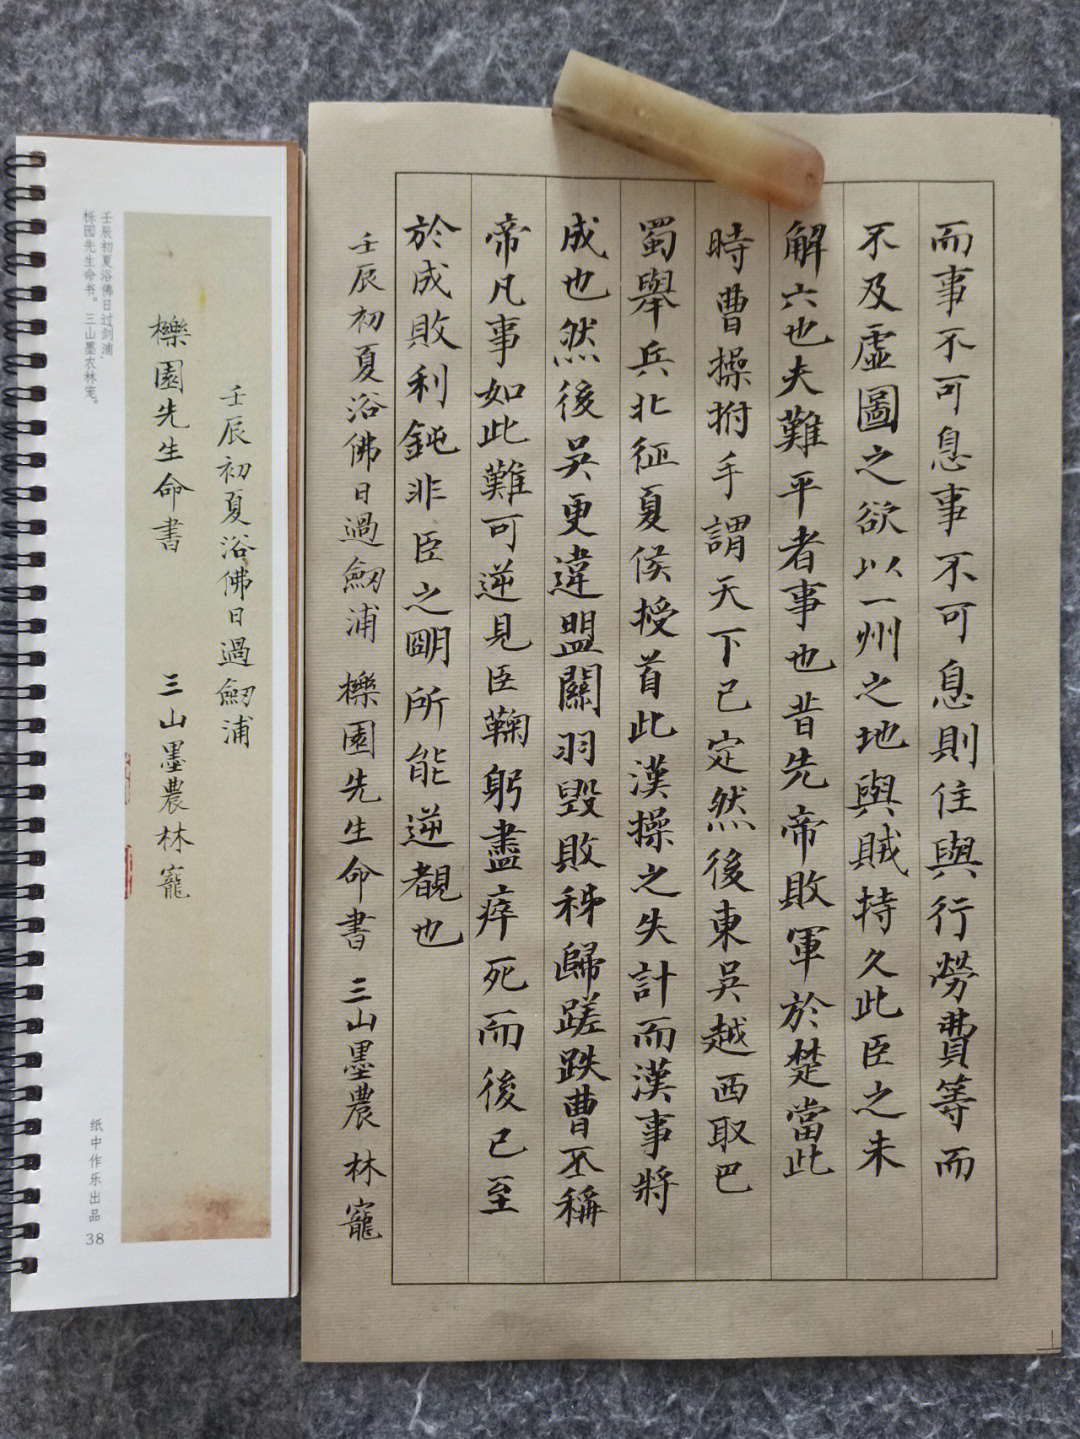 而事不可息事不可息則住與行勞費等而
不及虛圖之欲以一州之地與賊持久此臣之未
解六也夫難平者事也昔先帝敗軍於楚當此
時曹操拊手謂天下已定然後東吳越西取巴
蜀舉兵北征夏侯授首此漢操之失計而漢事將
成也然後吳更違盟關羽毀敗秭歸蹉跌曹丕稱
帝凡事如此難可逆見臣鞠躬盡瘁死而後已至
於成敗利鈍非臣之明所能逆覩也
壬辰初夏浴佛日過劒浦 櫟園先生命書 三山墨農 林寵
壬辰初夏浴佛日過劒浦
櫟園先生命書 三山墨農林寵
壬辰初夏浴佛日过剑浦,
栎园先生命书。三山墨农林宠。
纸中作乐出品
38